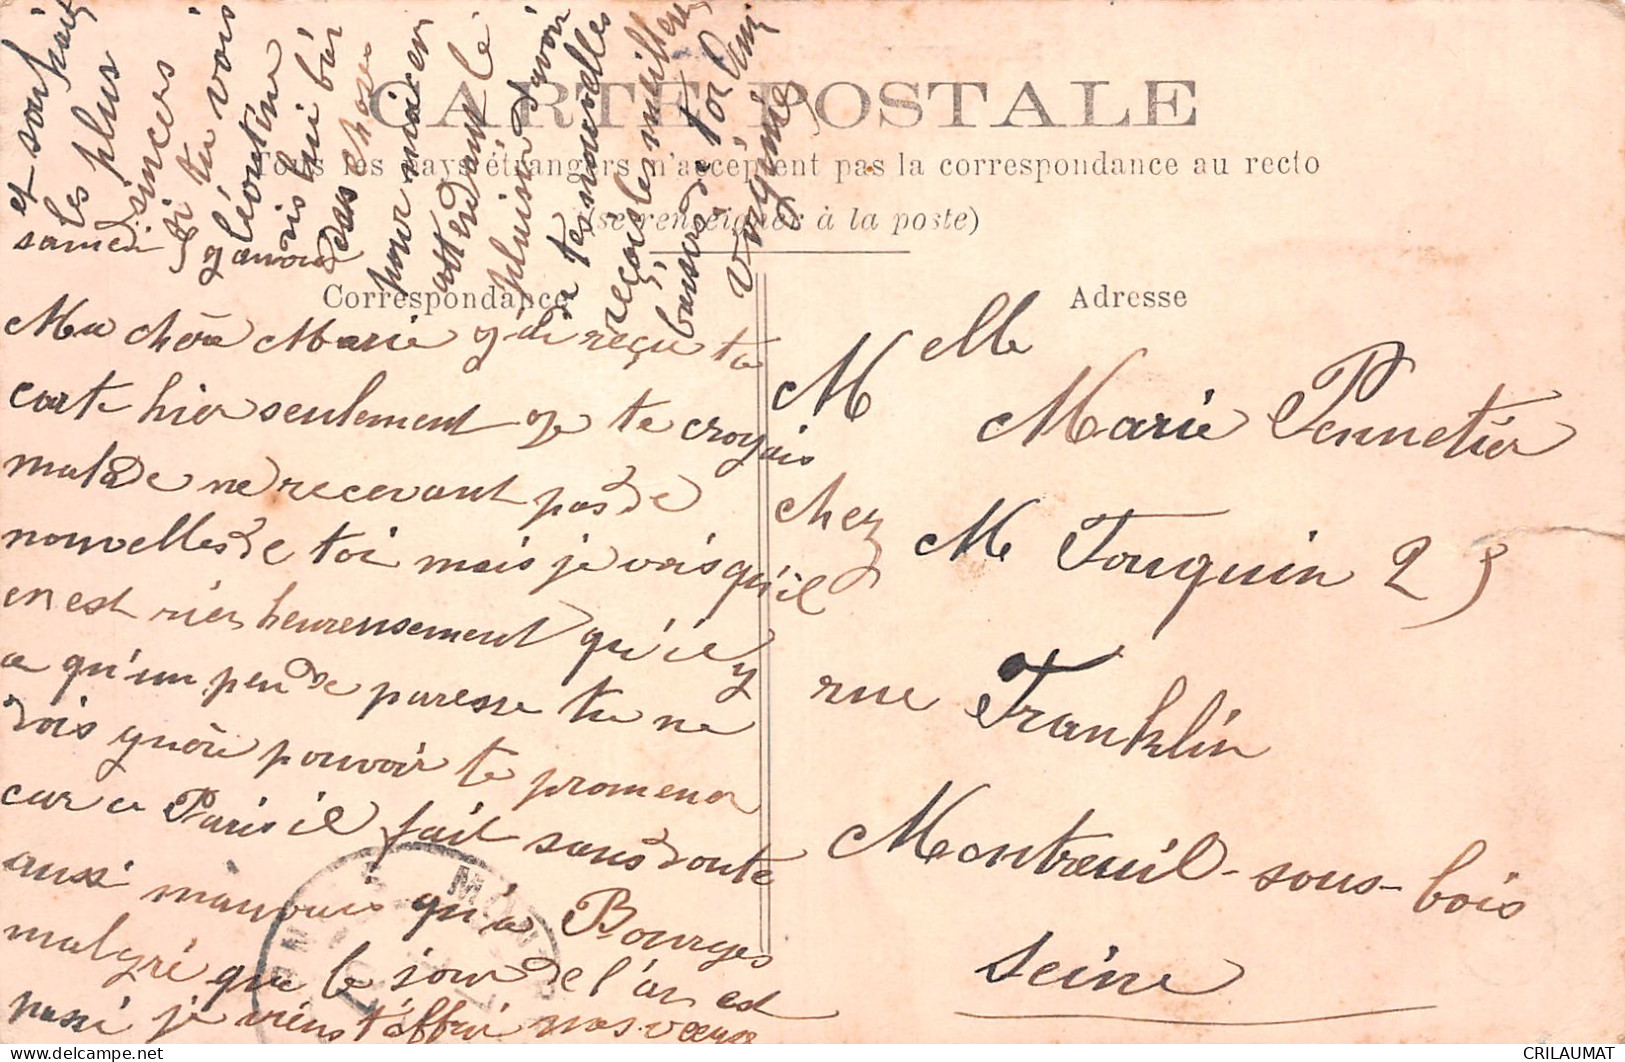 CARTE POSTALE
Tous les pays étrangers n'acceptent pas la correspondance au recto
(se renseigner à la poste)
Correspondance
Adresse
samedi 9 janvier
Ma chère Marie j'ai reçu ta
carte hier seulement je te croyais
malade ne recevant pas de
nouvelles de toi mais je vois qu'il
en est rien heureusement qu'il y
a qu'un peu de paresse tu ne
dois guère pouvoir te promener
car a Paris il fait sans doute
aussi mauvais qu'a Bourges
malgré que le jour de l'an est
passé je viens t'offrir nos voeux
et souhaits
les plus
sincères
Si tu vois
Léontine
dis lui bien
des choses
pour moi en
attendant le
plaisir d'avoir
de tes nouvelles
reçois le meilleur
baiser de ton amie
Virginie
Melle
Marie Pennetier
chez M Touquin 23
rue Franklin
Montreuil-sous-bois
Seine
CRILAUMAT